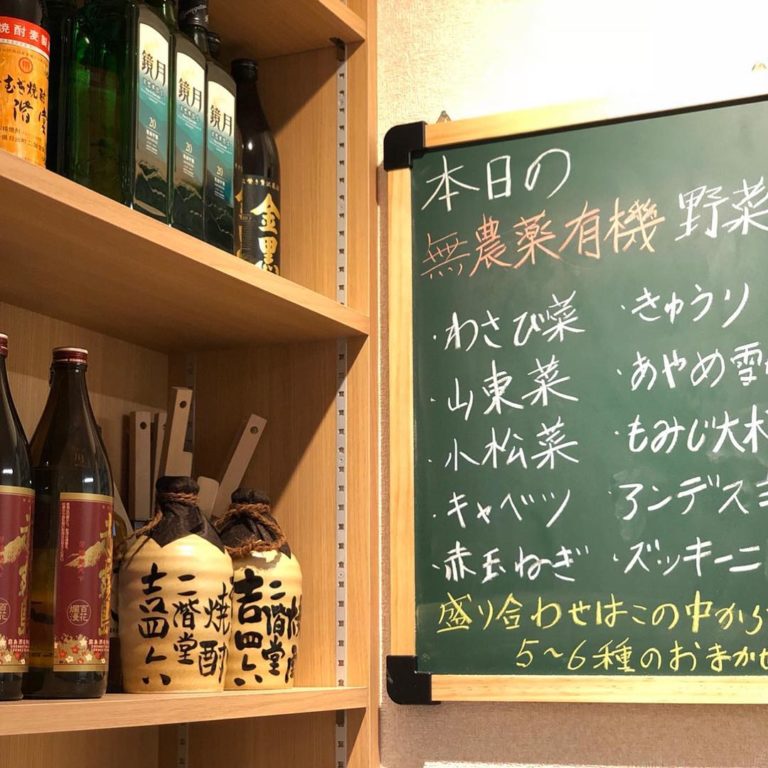 本日の
無農薬有機野菜
・わさび菜
・山東菜
・小松菜
・キャベツ
・赤玉ねぎ
・きゅうり
・あやめ雪
・もみじ大
・アンデス
・ズッキーニ
盛り合わせはこの中から
5〜6種のおまかせ
焼酎麦製
むぎ焼酎
二階堂
鏡月
20
鏡月
20
鏡月
20
金黒
百花爛漫
二階堂
焼酎
吉四六
二階堂
吉四六